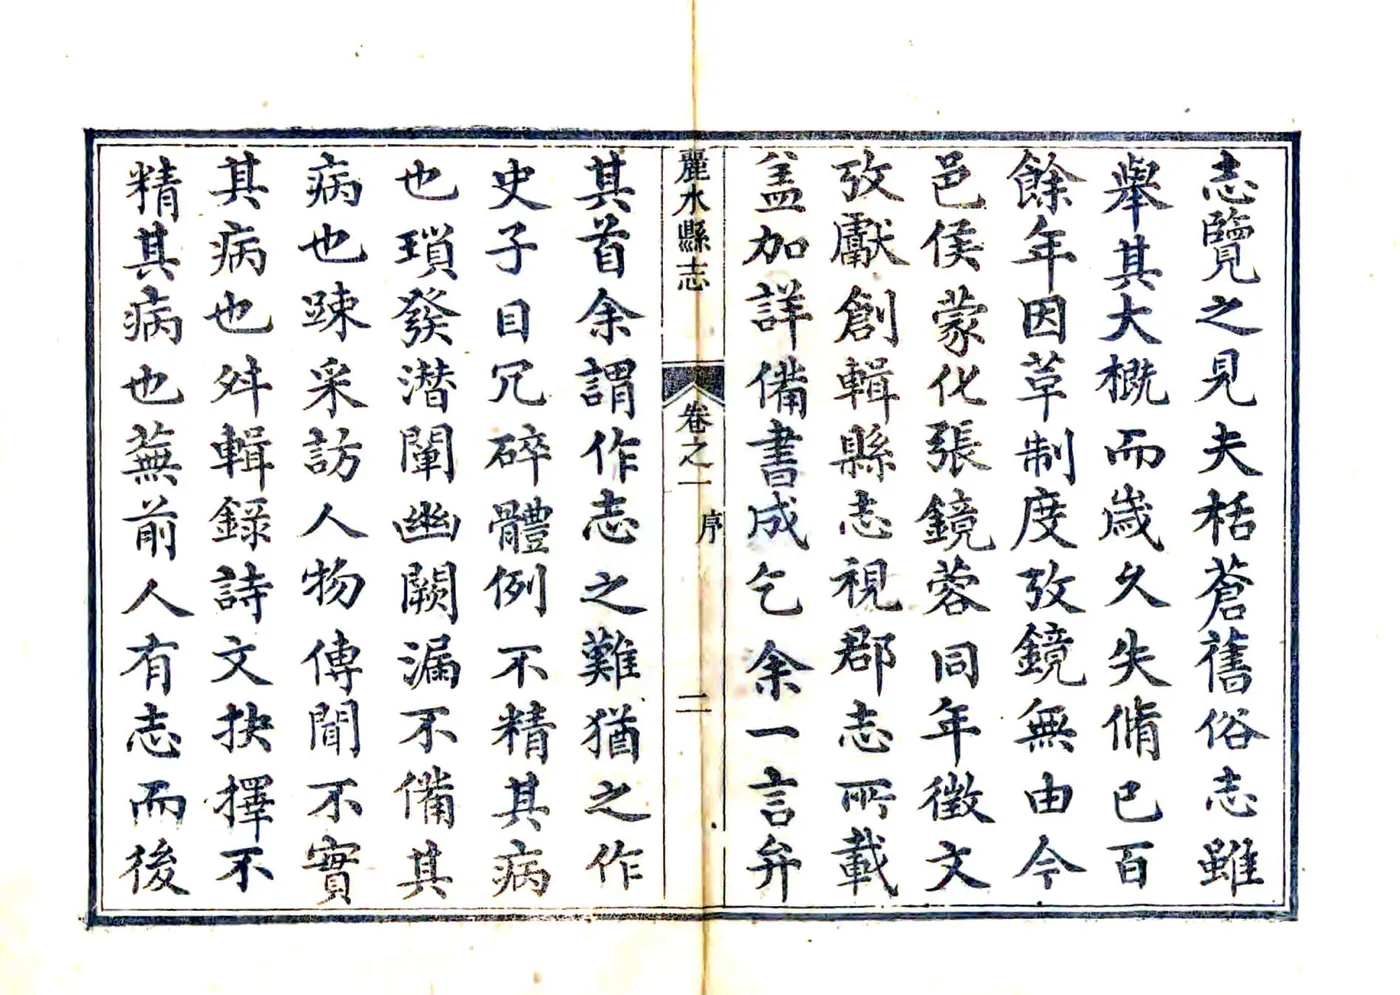 志覽之見夫栝蒼舊俗志雖
舉其大概而歲久失脩已百
餘年因革制度攷鏡無由今
邑侯蒙化張鏡蓉同年徵文
攷獻創輯縣志視郡志所載
盖加詳備書成乞余一言弁
麗水縣志
卷之一
序
二
其首余謂作志之難猶之作
史子目冗碎體例不精其病
也瑣發潛闡幽闕漏不備其
病也踈采訪人物傳聞不實
其病也舛輯錄詩文抉擇不
精其病也蕪前人有志而後